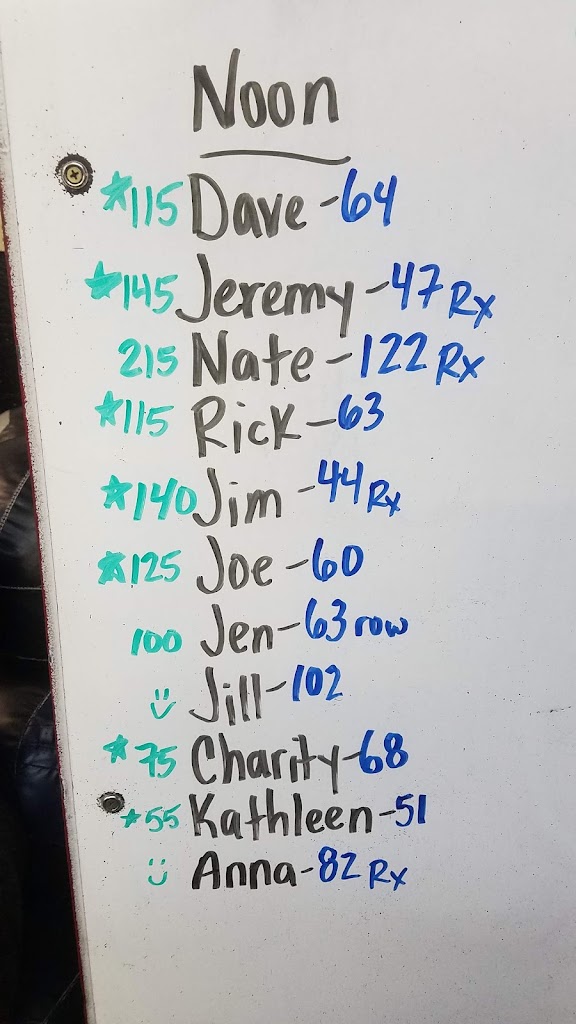 Noon
☆115 Dave - 64
☆145 Jeremy - 47 Rx
215 Nate - 122 Rx
☆115 Rick - 63
☆140 Jim - 44 Rx
☆125 Joe - 60
100 Jen - 63 row
Jill - 102
☆75 Charity - 68
☆55 Kathleen - 51
Anna - 82 Rx